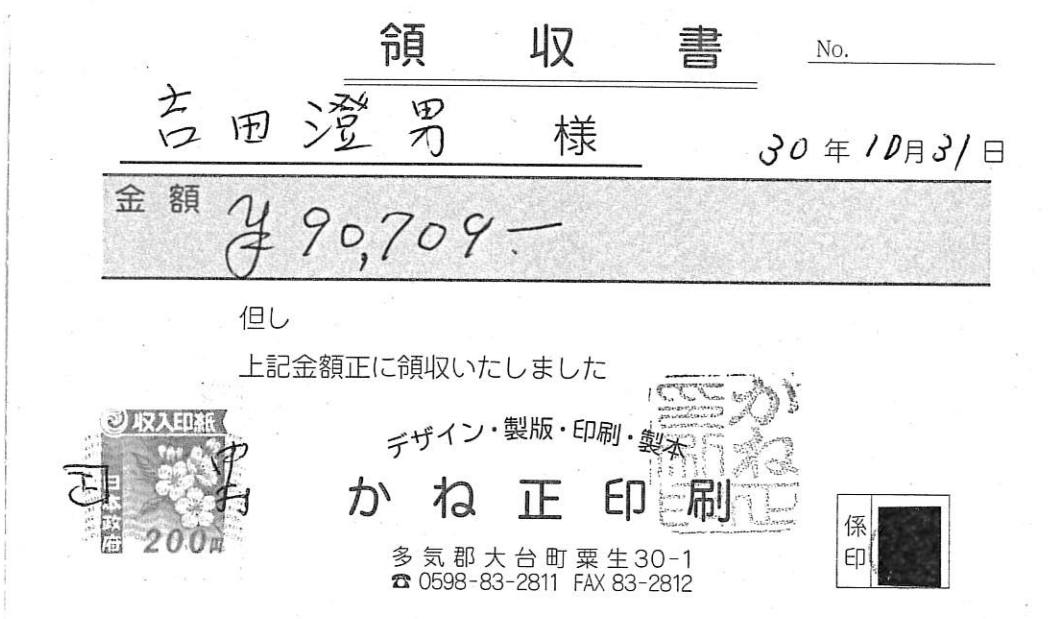 領収書
No.
吉田澄男 様
30年10月31日
金額 ¥90,709.-
但し
上記金額正に領収いたしました
収入印紙
日本政府
200円
デザイン・製版・印刷・製本
かね正印刷
かね正印刷
多気郡大台町粟生30-1
☎ 0598-83-2811 FAX 83-2812
係印